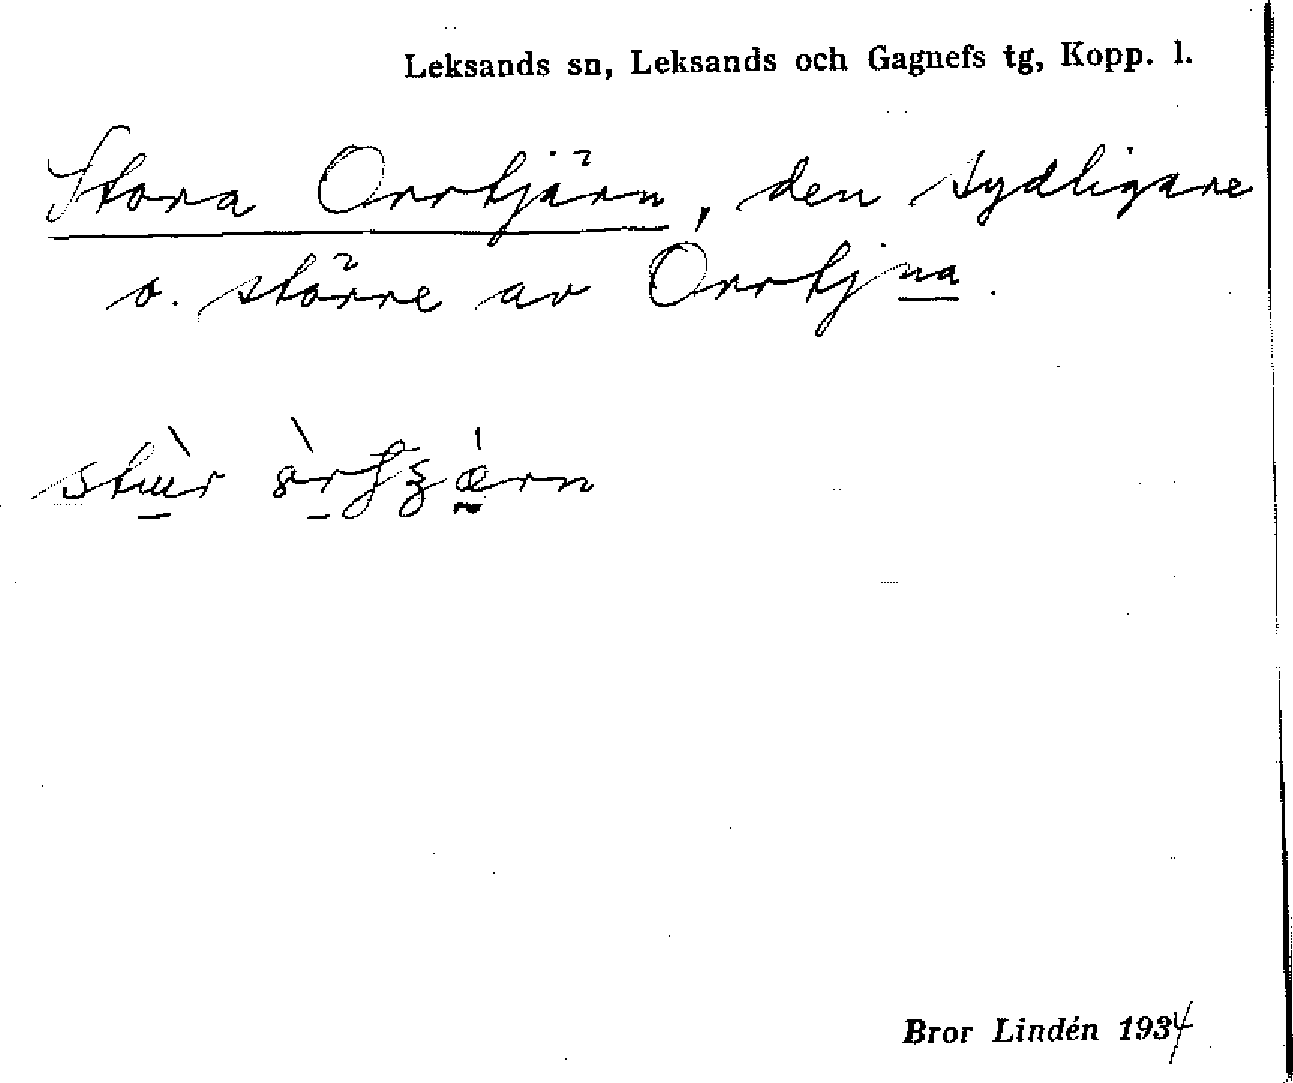 Leksands sn, Leksands och Gagnefs tg, Kopp. l.
Stora Orrtjärn, den sydligare
o. större av Orrtjna.
Bror Lindén 1934